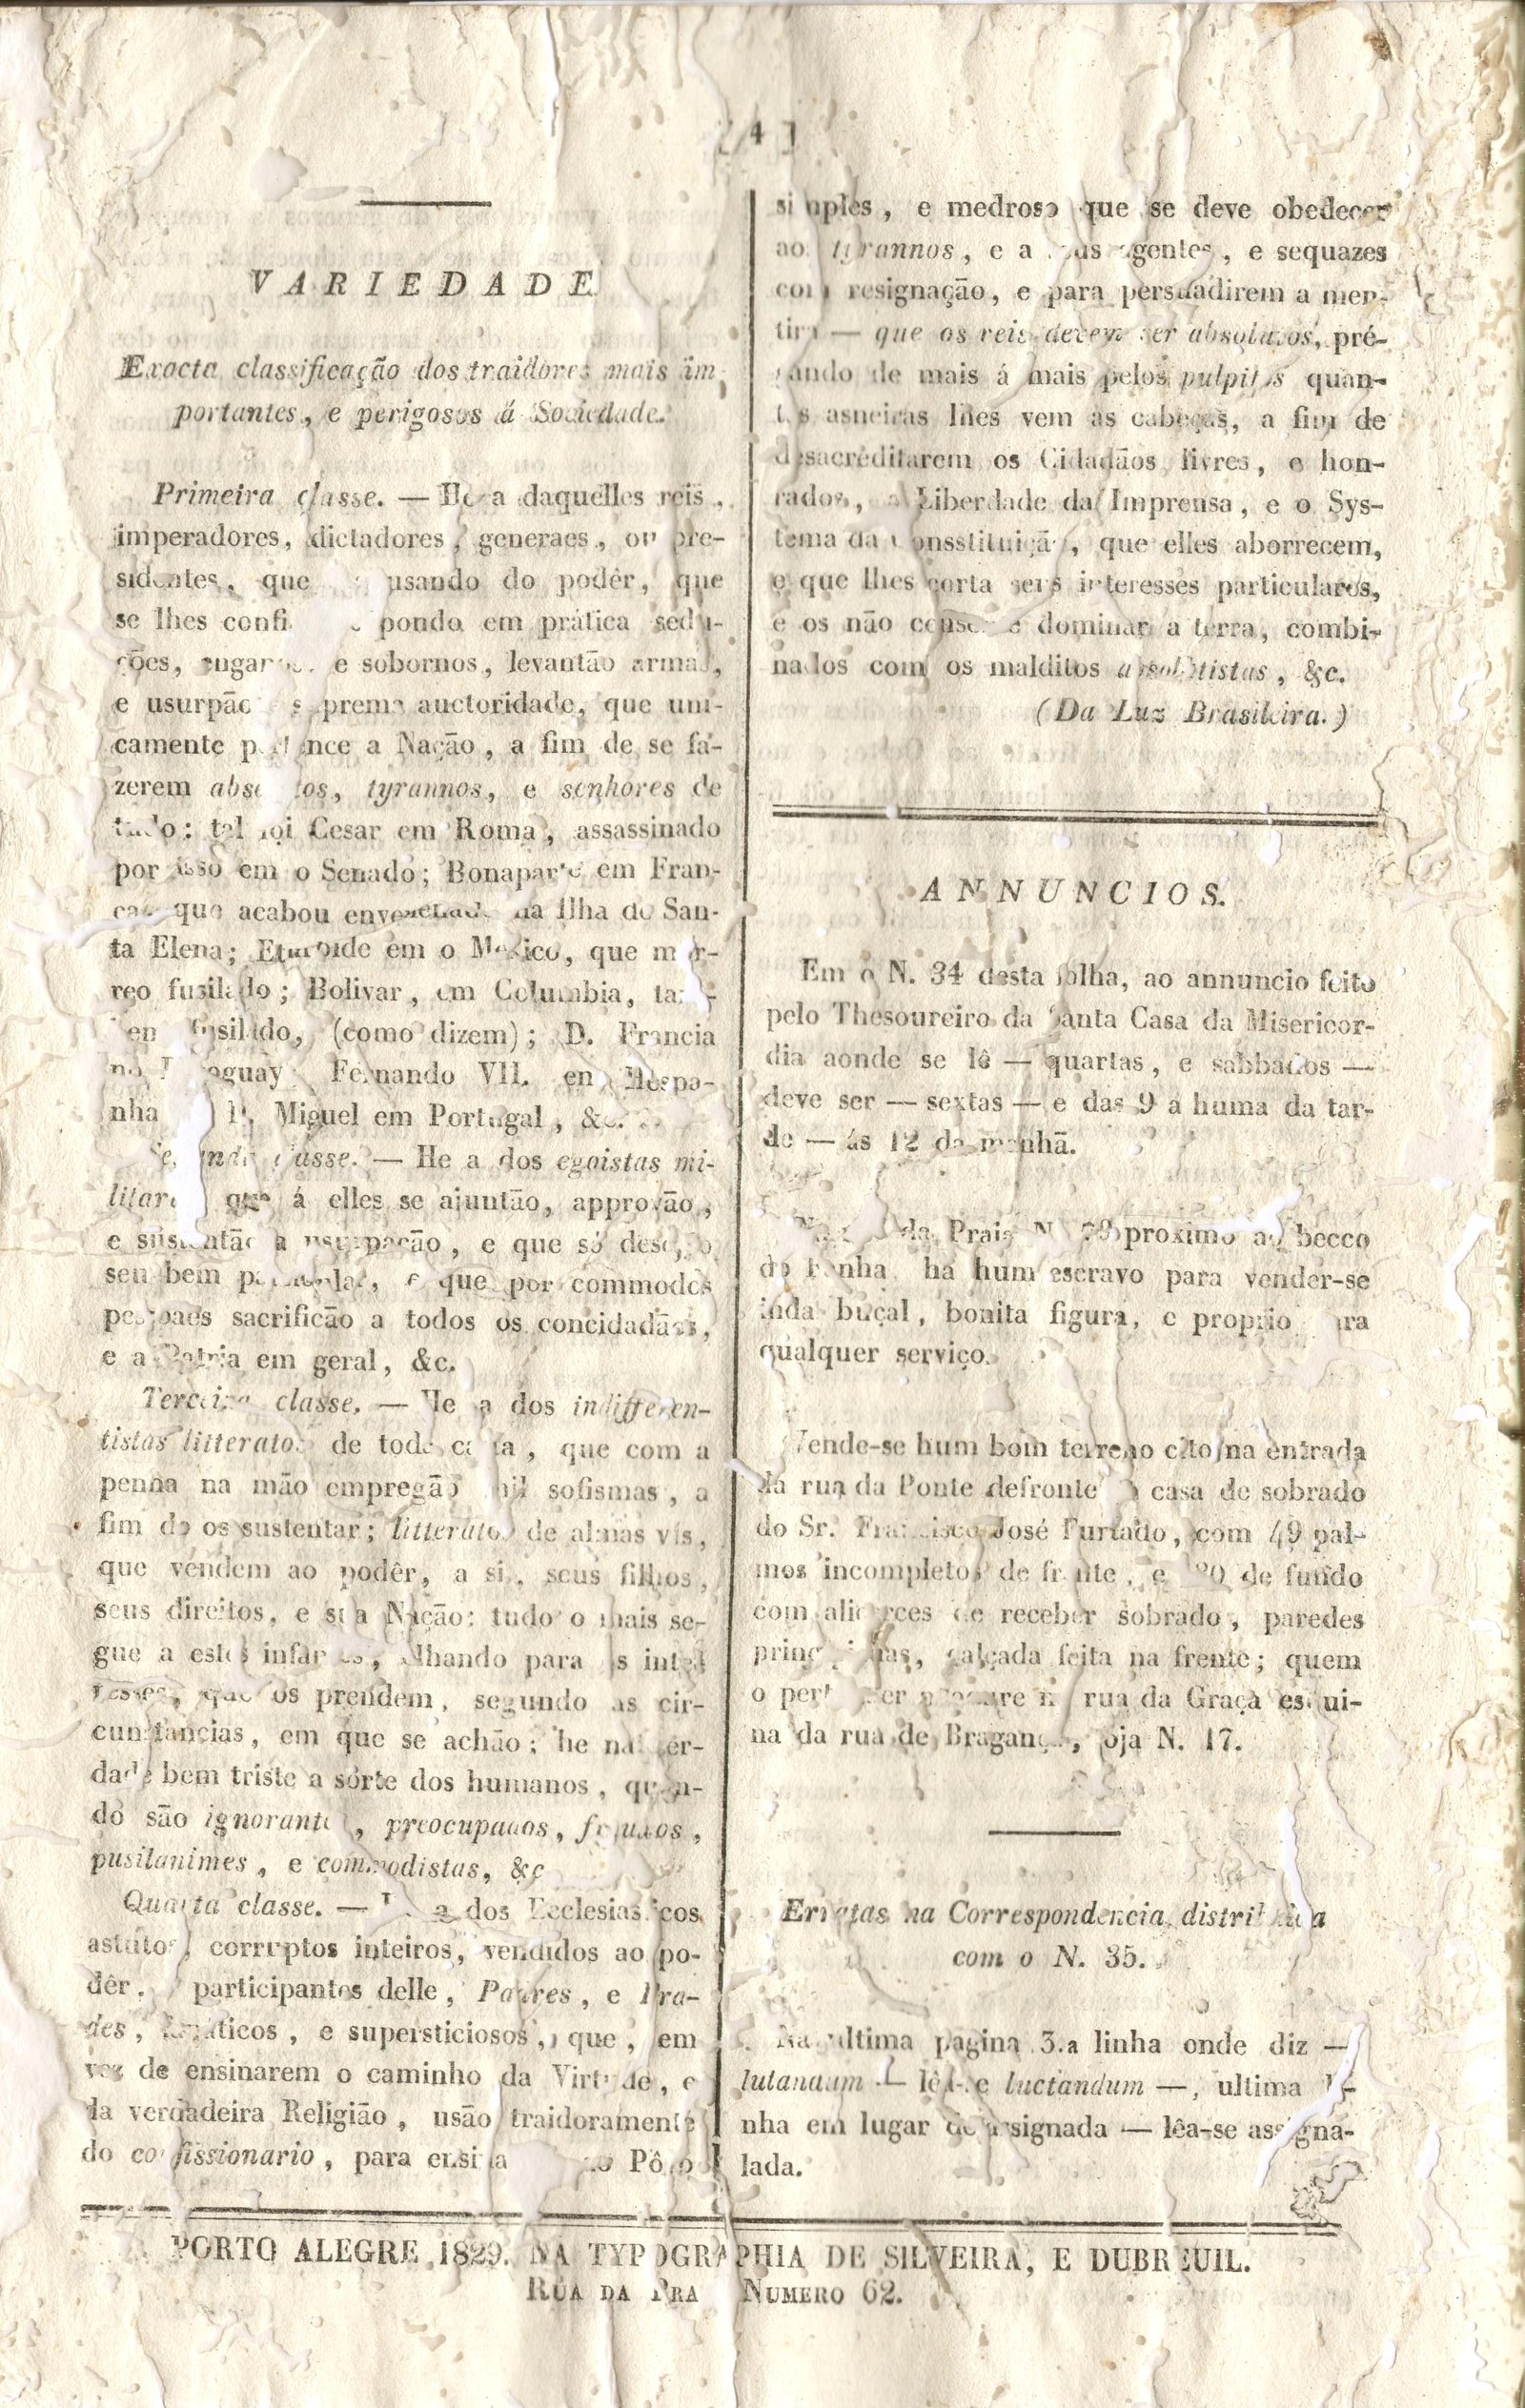 [ 4 ]
VARIEDADE
Exacta classificação dos traidores mais im-
portantes, e perigosos á Sociedade.
Primeira classe. — He a daquelles reis,
imperadores, dictadores, generaes, ou pre-
sidentes, que usando do podêr, que
se lhes pondo em prática sedu-
ções, e sobornos, levantão armas,
e usurpão suprema auctoridade, que uni-
camente pertence a Nação, a fim de se fa-
zerem tyrannos, e senhores de
tudo: tal foi Cesar em Roma, assassinado
por isso em o Senado; Bonaparte em Fran-
ça que acabou envenenado na Ilha de San-
ta Elena; em o Mexico, que mor-
reo fusilado; Bolivar, em Columbia, tam-
bem fusilado, (como dizem); D. Francia
no Paraguay Fernando VII. em Hespa-
nha D. Miguel em Portugal, &c.
Segunda classe. — He a dos egoistas mi-
litares que á elles se ajuntão, approvão,
e sustentão a usurpação, e que só desejão
seu bem particular, e que por commodos
pessoaes sacrificão a todos os concidadãos,
e a Patria em geral, &c.
Terceira classe. — He a dos indifferen-
tistas litteratos de toda casta, que com a
penna na mão empregão mil sofismas, a
fim de os sustentar; litteratos de almas vís,
que vendem ao podêr, a si, seus filhos,
seus direitos, e sua Nação: tudo o mais se-
gue a estes infames, olhando para os inte-
resses, que os prendem, segundo as cir-
cunstancias, em que se achão; he na ver-
dade bem triste a sórte dos humanos, quan-
do são ignorantes, preocupados,
pusilanimes, e commodistas, &c
Quarta classe. — He a dos Ecclesiasticos
astutos, corruptos inteiros, vendidos ao po-
dêr, participantes delle, Padres, e Fra-
des, fanaticos, e supersticiosos, que, em
vez de ensinarem o caminho da Virtude, e
da verdadeira Religião, usão traidoramente
do confissionario, para ensinar ao Pôvo
simples, e medroso que se deve obedecer
aos tyrannos, e a seus agentes, e sequazes
com resignação, e para persuadirem a men-
tira — que os reis devem ser absolutos, pré-
gando de mais á mais pelos pulpitos quan-
tas asneiras lhes vem ás cabeças, a fim de
desacreditarem os Cidadãos livres, e hon-
rados, a Liberdade da Imprensa, e o Sys-
tema da Consstituição, que elles aborrecem,
e que lhes corta seus interesses particulares,
e os não consente dominar a terra, combi-
nados com os malditos absolutistas, &c.
(Da Luz Brasileira.)
ANNUNCIOS.
Em o N. 34 desta folha, ao annuncio feito
pelo Thesoureiro da Santa Casa da Misericor-
dia aonde se lê — quartas, e sabbados —
deve ser — sextas — e das 9 a huma da tar-
de — ás 12 da manhã.
da Praia N. proximo ao becco
do ha hum escravo para vender-se
inda buçal, bonita figura, e proprio para
qualquer serviço.
Vende-se hum bom terreno cito na entrada
da rua da Ponte defronte casa de sobrado
do Sr. Francisco José Furtado, com 49 pal-
mos incompletos de frente, e de fundo
com alicerces de receber sobrado, paredes
principiadas, calçada feita na frente; quem
o pertender procure na rua da Graça esqui-
na da rua de Bragança, loja N. 17.
Erratas na Correspondencia distribuida
com o N. 35.
Na ultima pagina 3.a linha onde diz —
lutandum — lêa-se luctandum —, ultima li-
nha em lugar de assignada — lêa-se assigna-
lada.
PORTO ALEGRE 1829. NA TYPOGRAPHIA DE SILVEIRA, E DUBREUIL.
RUA DA PRAIA NUMERO 62.